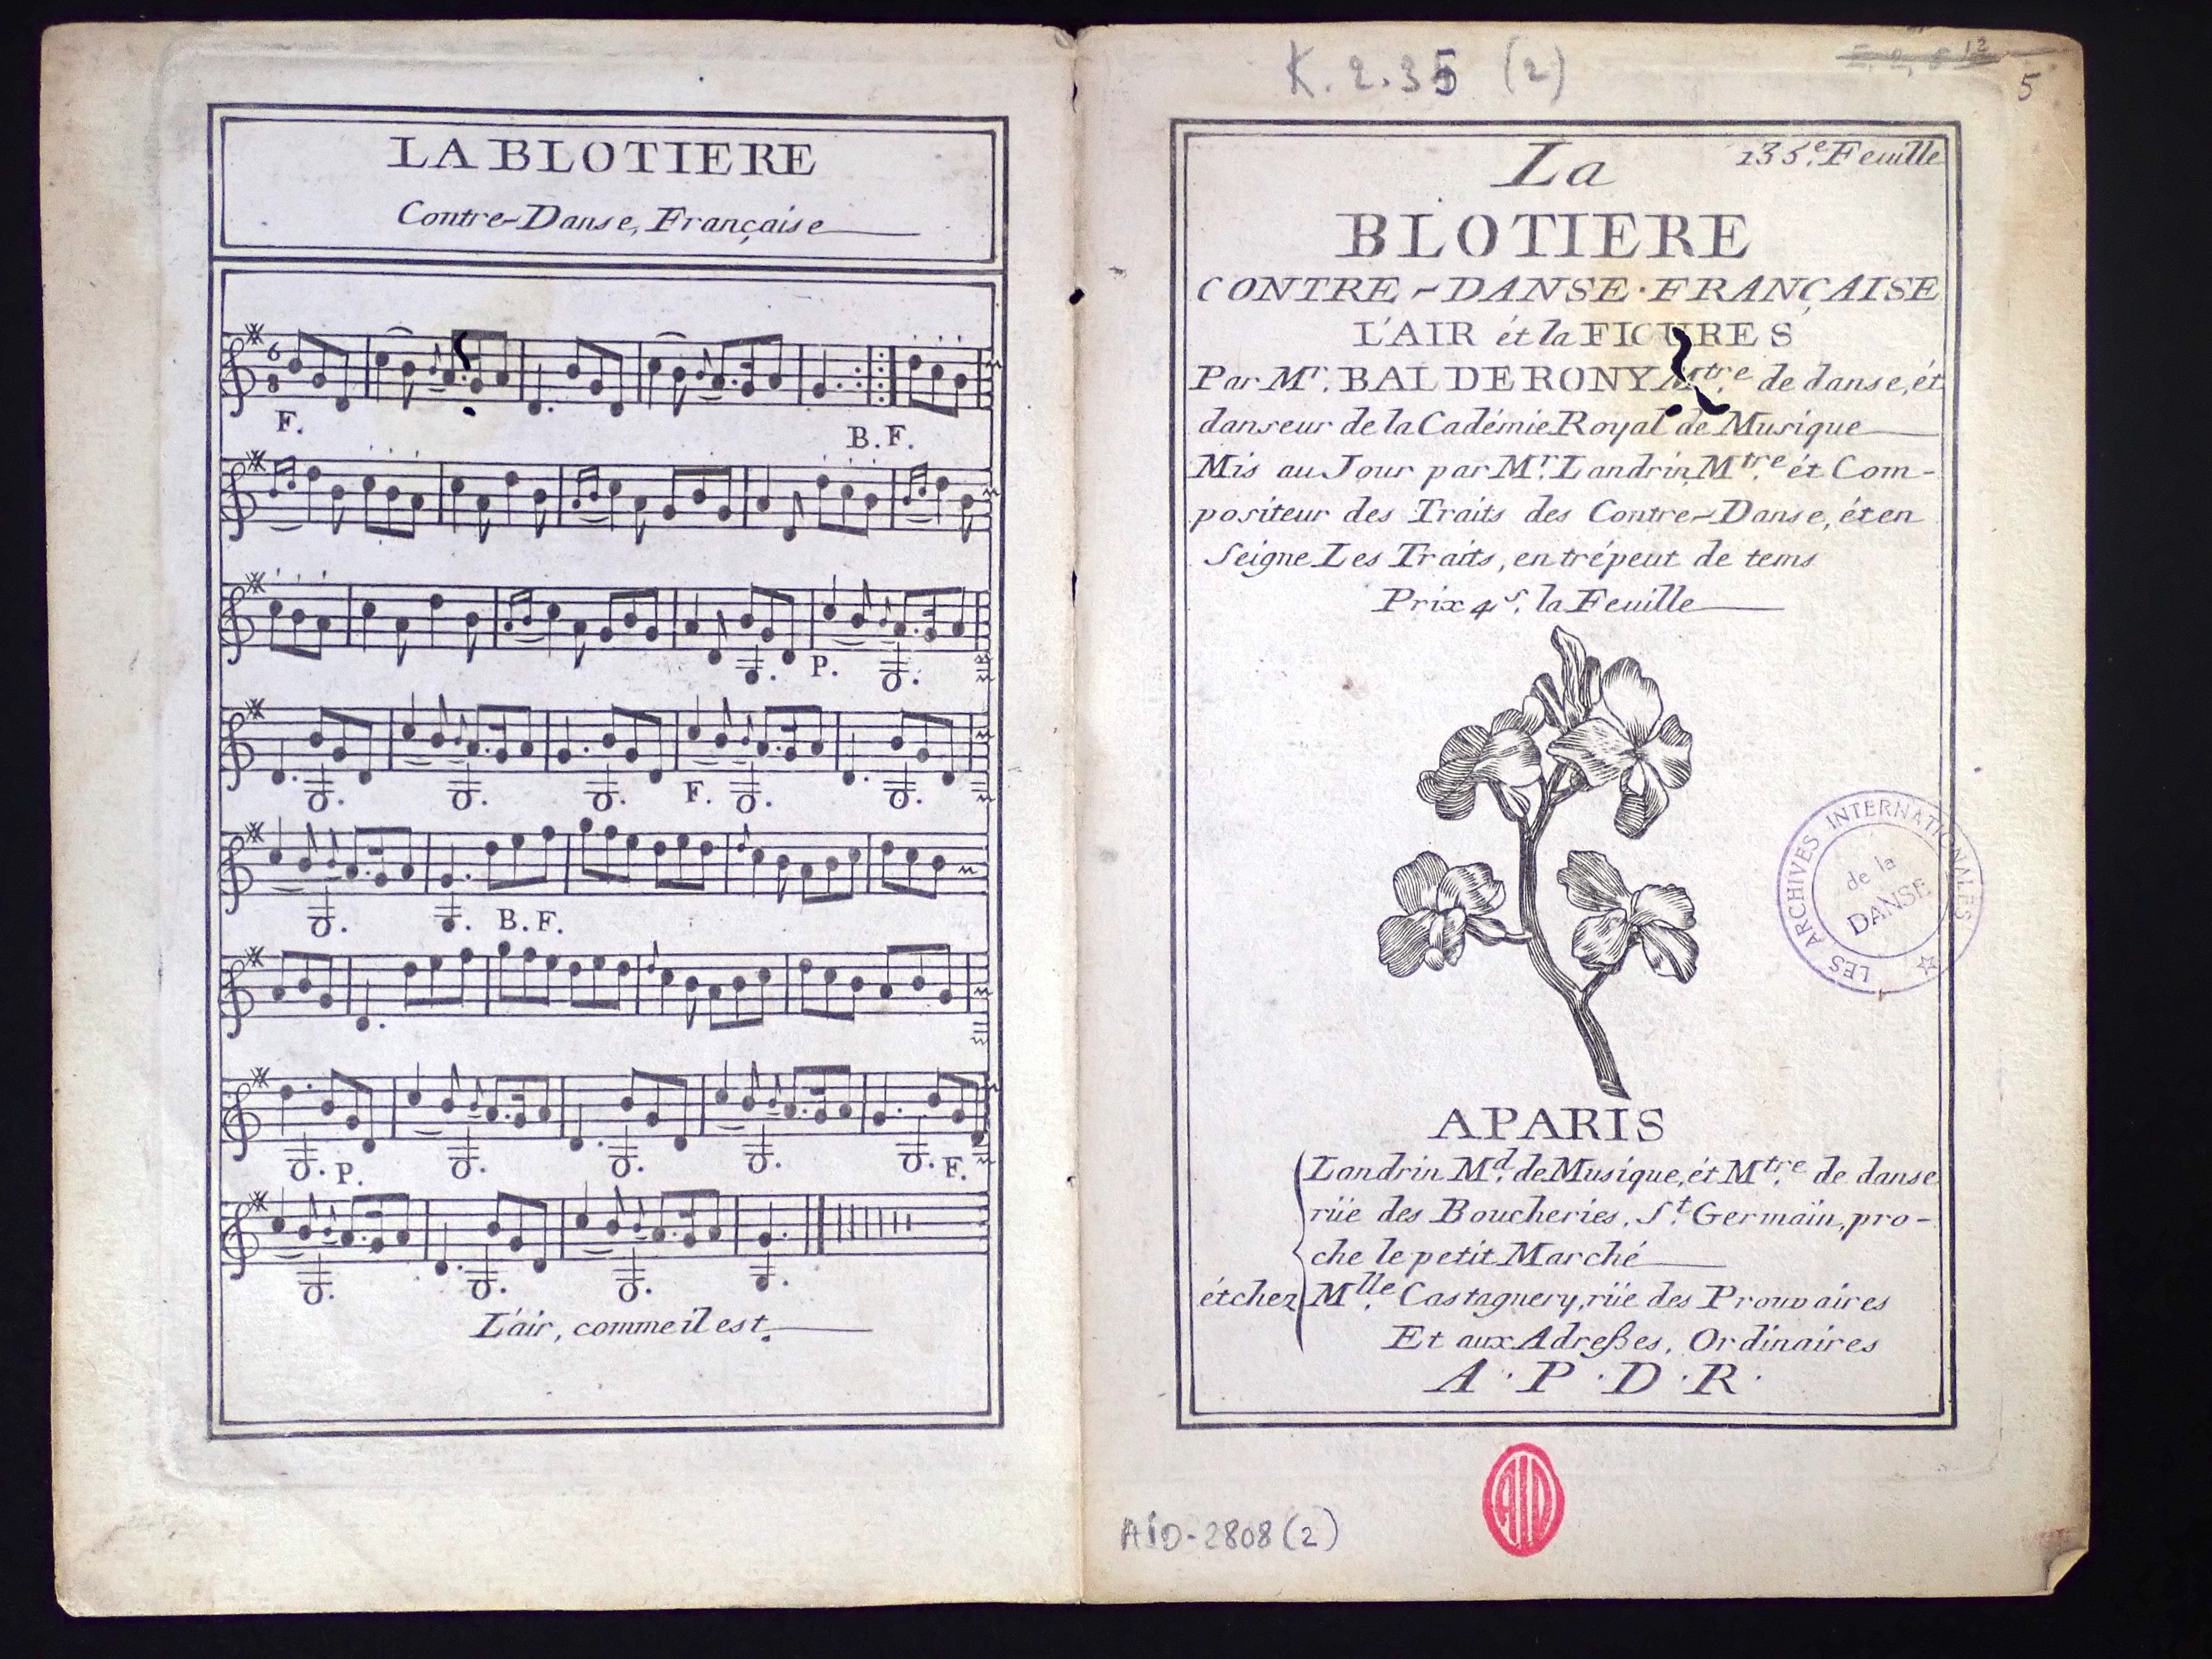 LA BLOTIERE
Contre-Danse, Française
6
8
F.
B. F.
P.
F.
B. F.
P.
F.
L'air, comme il est.
K. 2. 35 (2)
12
5
135.e Feuille
La
BLOTIERE
CONTRE-DANSE·FRANÇAISE
L'AIR ét la FIGURES
Par Mr. BALDERONY Mtre. de danse, ét
danseur de la Cadémie Royal de Musique
Mis au Jour par Mr. Landrin, Mtre. ét Com-
positeur des Traits des Contre-Danse, ét en
seigne Les Traits, en trépeut de tems
Prix 4s. la Feuille
LES ARCHIVES INTERNATIONALES
de la
DANSE
A PARIS
Landrin Md. de Musique, ét Mtre. de danse
rüe des Boucheries, St. Germain, pro-
che le petit Marché
ét chez Mlle. Castagnery, rüe des Prouvaires
Et aux Adreßes, Ordinaires
A · P · D · R ·
AID
AID-2808 (2)